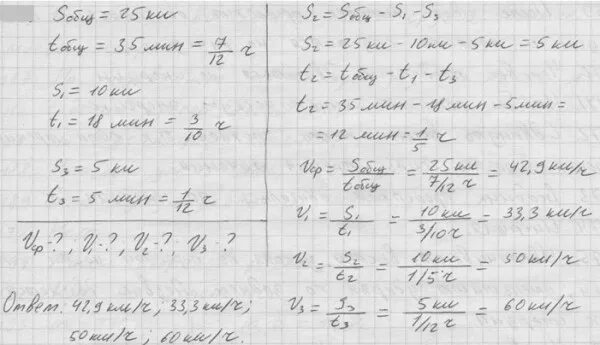 Sобщ = 25 км
tобщ = 35 мин = 7/12 ч
S1 = 10 км
t1 = 18 мин = 3/10 ч
S3 = 5 км
t3 = 5 мин = 1/12 ч
Vср-?, V1-?, V2-?, V3-?
Ответ. 42,9 км/ч; 33,3 км/ч;
50 км/ч; 60 км/ч.
S2 = Sобщ - S1 - S3
S2 = 25 км - 10 км - 5 км = 5 км
t2 = tобщ - t1 - t3
t2 = 35 мин - 18 мин - 5 мин =
= 12 мин = 1/5 ч
Vср = Sобщ/tобщ = 25 км/7/12 ч = 42,9 км/ч
V1 = S1/t1 = 10 км/3/10 ч = 33,3 км/ч
V2 = S2/t2 = 10 км/1/5 ч = 50 км/ч
V3 = S3/t3 = 5 км/1/12 ч = 60 км/ч